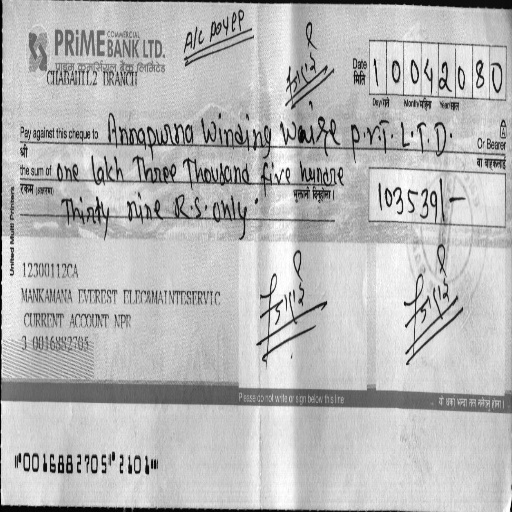 PRIME COMMERCIAL BANK LTD.
प्राइम कमर्सियल बैंक लिमिटेड
CHABAHIL2 BRANCH
A/C payee
Date मिति
10042080
Day/गते Month/महिना Year/साल
Pay against this cheque to Annapurna Winding Waire P.V.T. L.T.D. Or Bearer
श्री वा वाहकलाई
the sum of one lakh Three Thousand five hundre
रकम (अक्षरमा) भुक्तानी दिनुहोला।
Thirty nine R.S. only.
103539/-
United Multi Printers
12300112CA
MANKAMANA EVEREST ELEC&MAINTESERVIC
CURRENT ACCOUNT NPR
3 0016882705
Please do not write or sign below this line
⑈0016882705⑈2101⑈